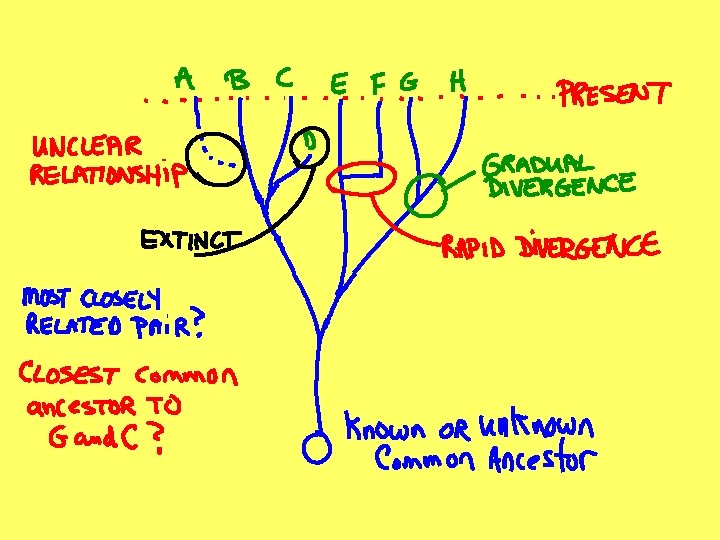 A B C E F G H
PRESENT
D
UNCLEAR
RELATIONSHIP
GRADUAL
DIVERGENCE
EXTINCT
RAPID DIVERGENCE
MOST CLOSELY
RELATED PAiR?
CLOSEST common
ancESTOR TO
G and C?
Known OR UnKnown
Common Ancestor